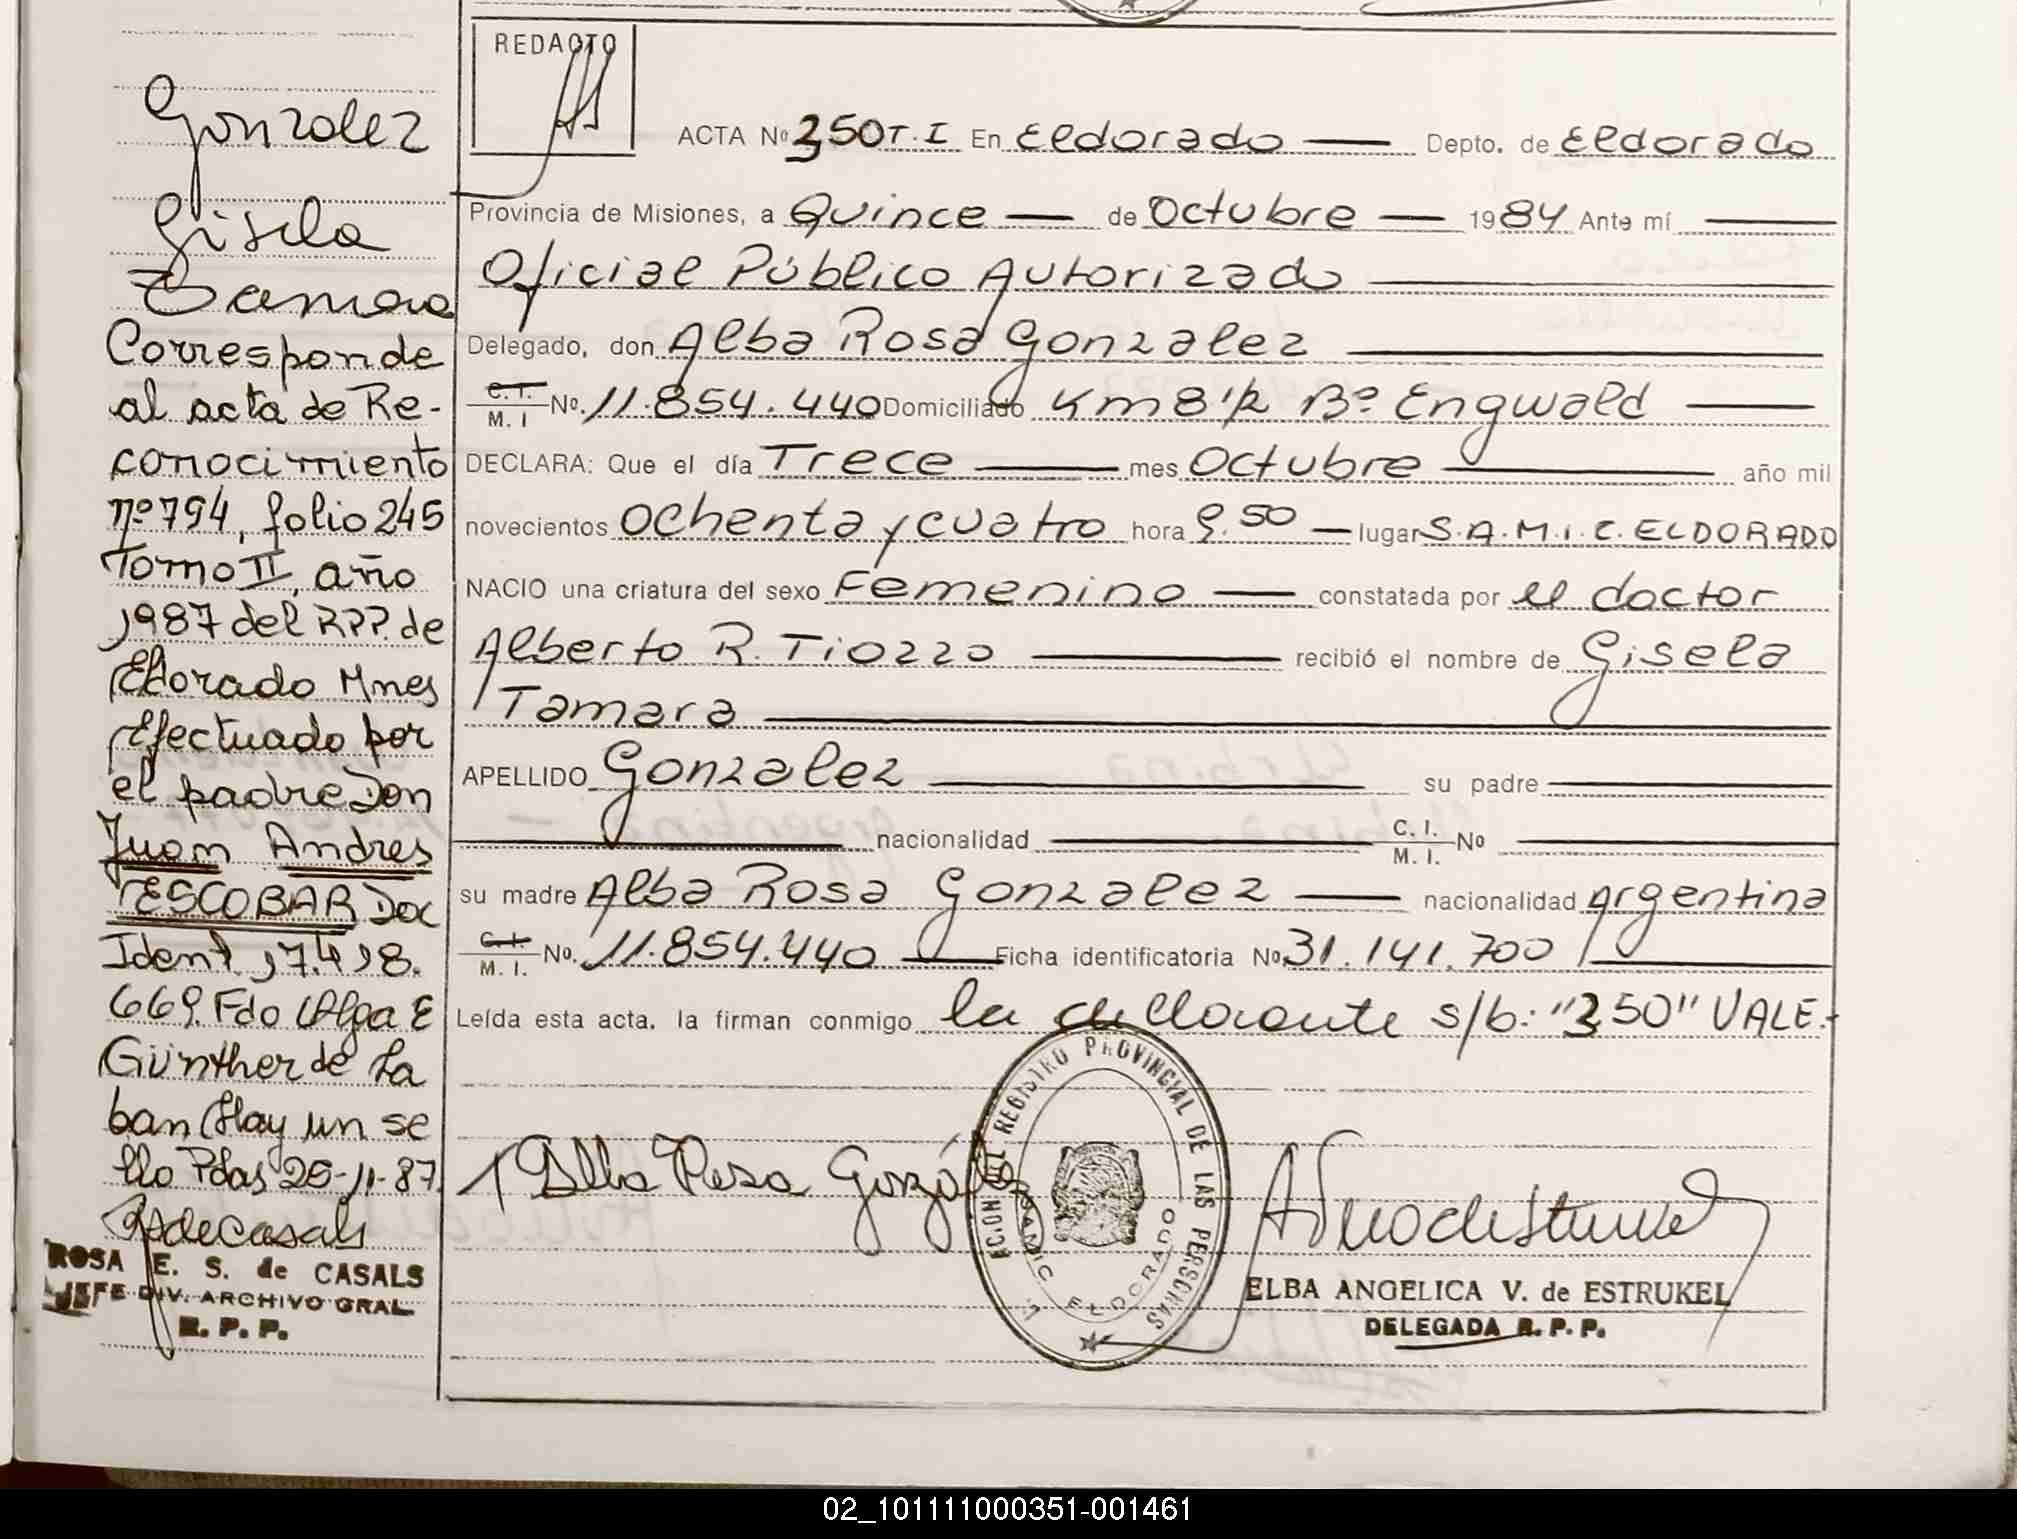 Gonzalez
Gisela
Tamara
Corresponde
al acta de Re-
conocimiento
nº 794, folio 245
Tomo II, año
1987 del RPP. de
Eldorado Mnes
Efectuado por
el padre Don
Juan Andres
ESCOBAR Doc
Ident. 17.418.
669. Fdo Olga E
Günther de La
ban (Hay un se
llo Pdas 25-11-87.
RdeCasals
ROSA E. S. de CASALS
JEFE DIV. ARCHIVO GRAL
R. P. P.
REDACTO
ACTA Nº 350 T.I En Eldorado — Depto. de Eldorado
Provincia de Misiones, a Quince — de Octubre — 1984 Ante mí
Oficial Público Autorizado
Delegado, don Alba Rosa Gonzalez
C. I. M. I Nº. 11.854.440 Domiciliado Km 8 1/2 Bº. Engwald
DECLARA: Que el día Trece — mes Octubre — año mil
novecientos Ochenta y cuatro hora 9.50 — lugar S.A.M.I.C. ELDORADO
NACIO una criatura del sexo Femenino — constatada por el doctor
Alberto R. Tiozzo — recibió el nombre de Gisela
Tamara
APELLIDO Gonzalez — su padre
nacionalidad — C. I. M. I. Nº
su madre Alba Rosa Gonzalez — nacionalidad Argentina
C. I. M. I. Nº. 11.854.440 — Ficha identificatoria Nº 31.141.700
Leída esta acta, la firman conmigo la declarante s/b: "350" VALE.-
Alba Rosa Gonzále
REGISTRO PROVINCIAL DE LAS PERSONAS
SAMIC ELDORADO
ELBA ANGELICA V. de ESTRUKEL
DELEGADA R. P. P.
02_101111000351-001461